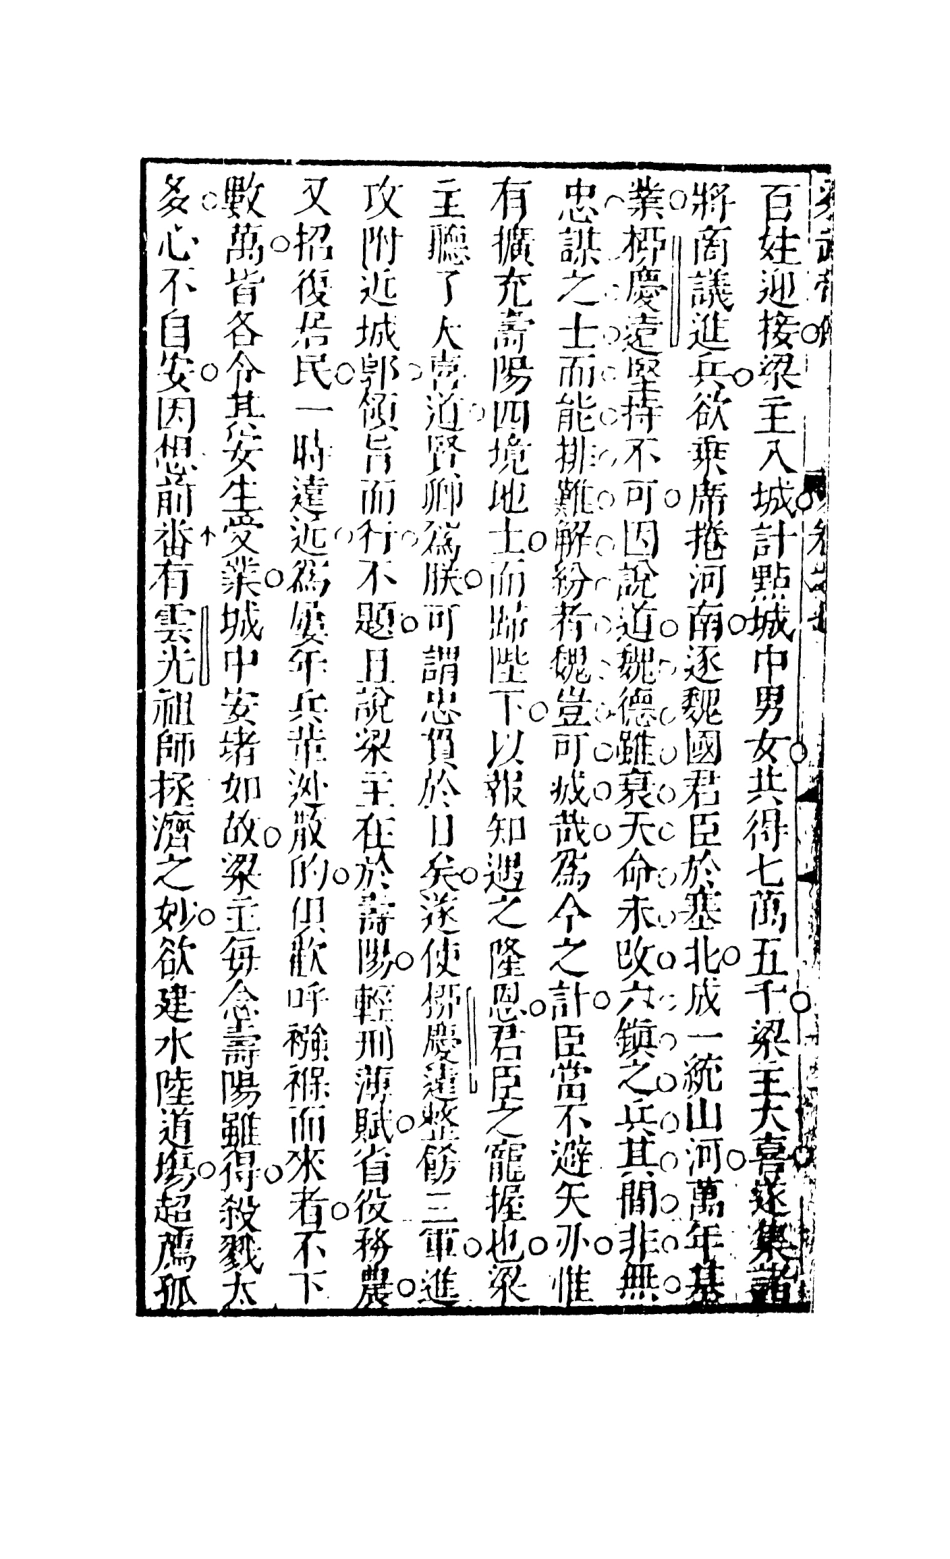 百姓迎接梁主入城計點城中男女共得七萬五千梁主大喜遂集諸
將商議進兵欲乘席捲河南逐魏國君臣於塞北成一統山河萬年基
業柳慶遠堅持不可因說道魏德雖衰天命未改六鎮之兵其間非無
忠謀之士而能排難解紛者魏豈可滅哉為今之計臣當不避矢亦惟
有擴充壽陽四境地土而歸陛下以報知遇之隆恩君臣之寵握也梁
主聽了大喜道賢卿為朕可謂忠貫於日矣遂使柳慶遠整飭三軍進
攻附近城郭領旨而行不題且說梁主在於壽陽輕刑薄賦省役務農
又招復居民一時遠近為屢年兵荒逃散的俱歡呼襁褓而來者不下
數萬皆各令其安生受業城中安堵如故梁主每念壽陽雖得殺戮太
多心不自安因想前番有雲光祖師拯濟之妙欲建水陸道場超薦孤